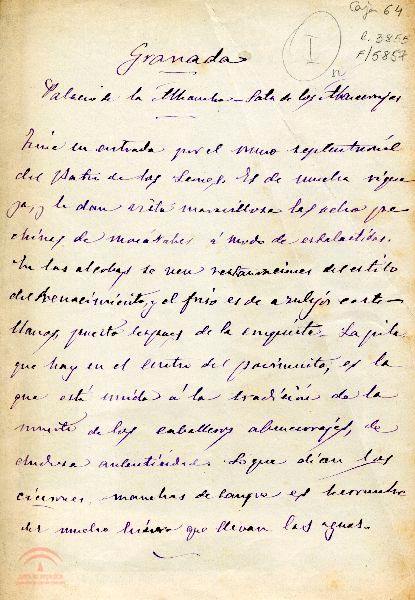 Caja 64
I
C. 3855
F/5857
Granada
Palacio de la Alhambra - Sala de los Abencerrajes
Tiene su entrada por el muro septentrional
del patio de los Leones. Es de mucha rique
za, y le dan vista maravillosa las ocho pe
chinas de mocárabes á modo de estalactitas.
En las alcobas se ven restauraciones del estilo
del Renacimiento, y el friso es de azulejos caste-
llanos, puesto despues de la conquista. La pila
que hay en el centro del pavimento, es la
que está unida á la tradición de la
muerte de los caballeros abencerrajes, de
dudosa autenticidad. Lo que dicen los
cicerones, manchas de sangre es herrumbre
del mucho hierro que llevan las aguas.